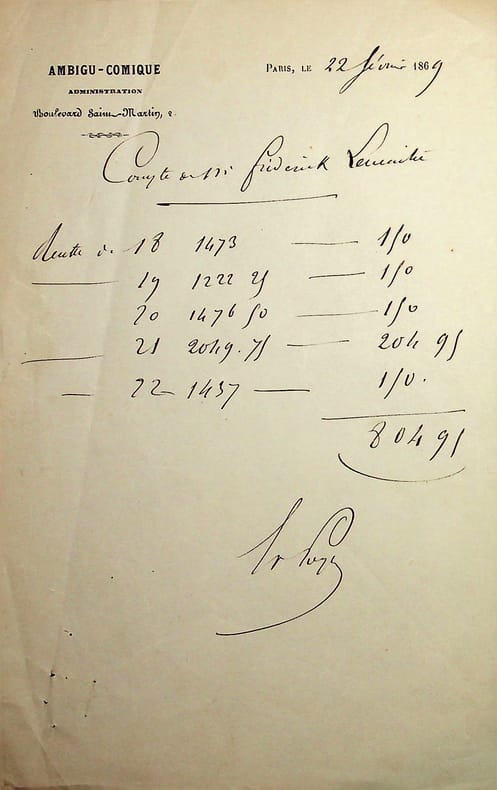 AMBIGU-COMIQUE
ADMINISTRATION
Boulevard Saint-Martin, 2
PARIS, LE 22 février 1869
Compte de Mr Frédérick Lemaitre
Recette du 18 1473 — 150
— 19 1222 25 — 150
20 1476 50 — 150
— 21 2049.75 — 204 95
— 22 1457 — 150.
804 95